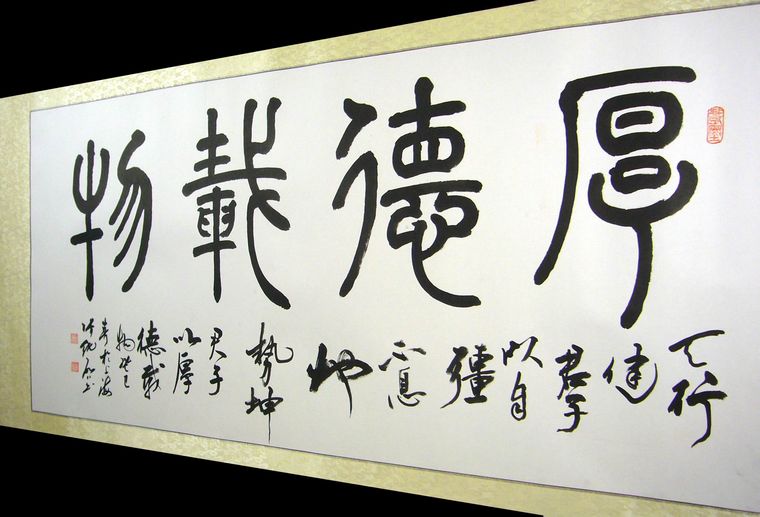 厚德載物
天行
健
君子
以自
彊
不息
地
勢坤
君子
以厚
德載
物
於上海
书